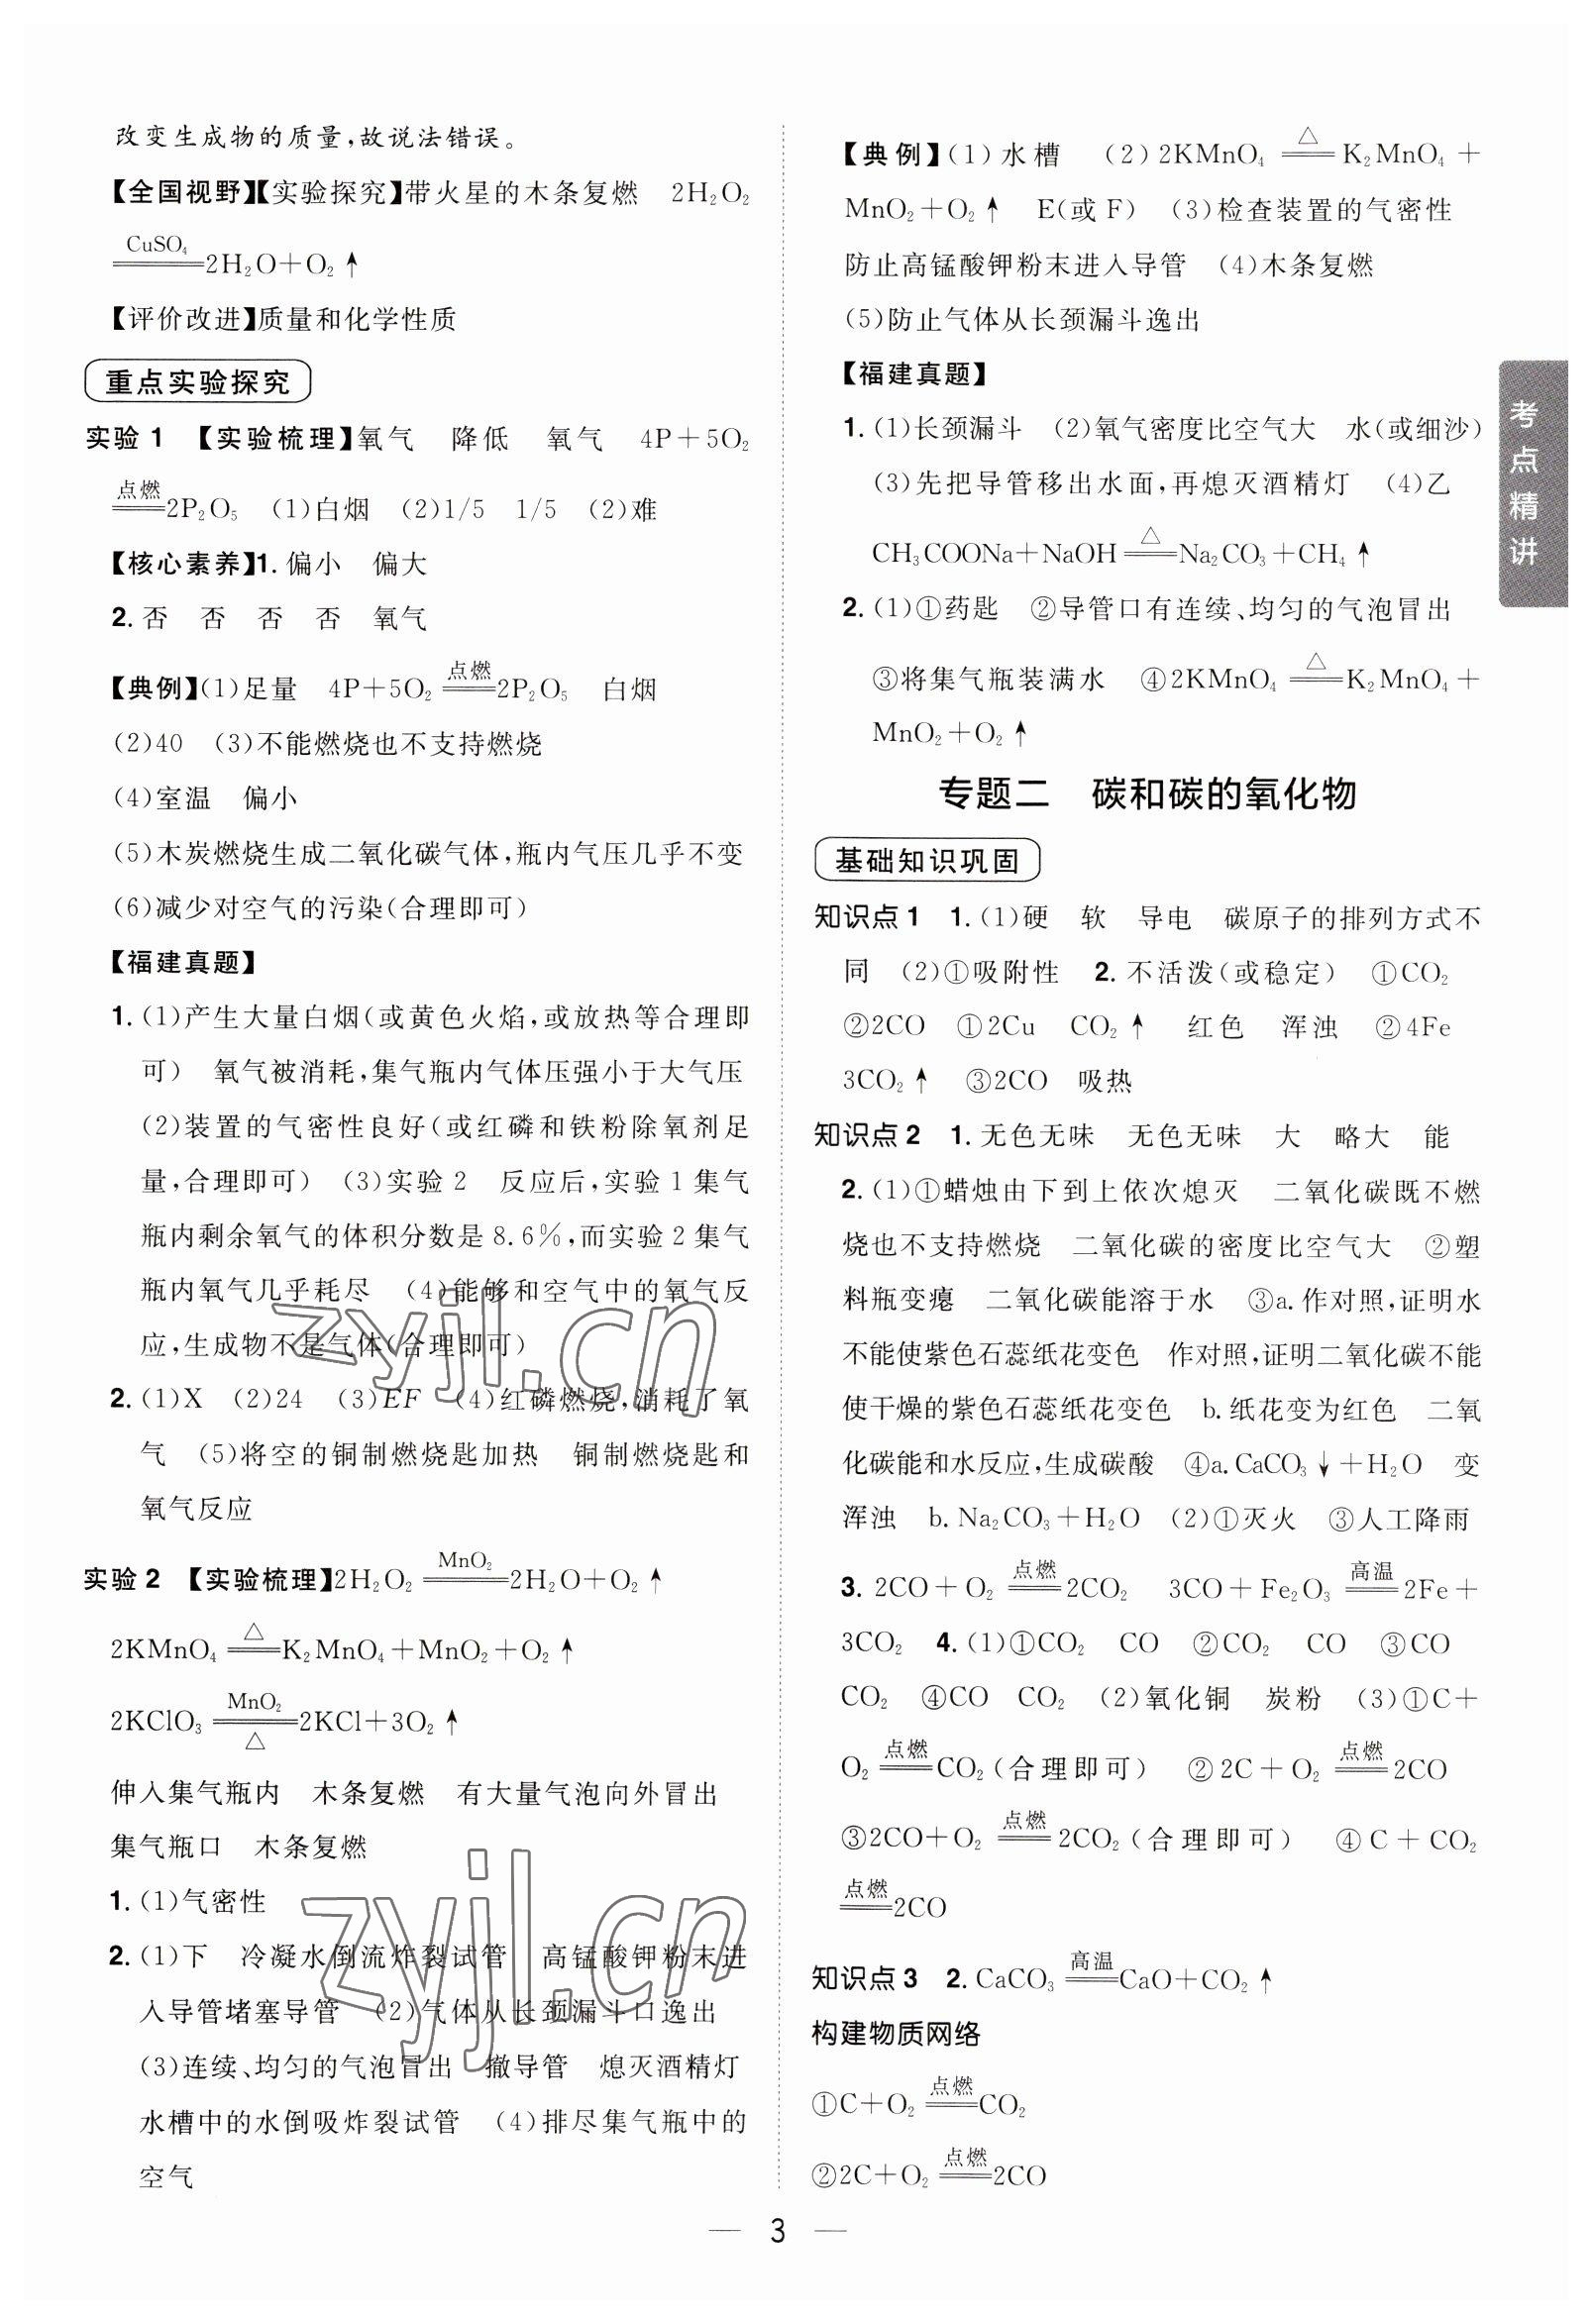 改变生成物的质量,故说法错误。
【全国视野】【实验探究】带火星的木条复燃 2H₂O₂
CuSO₄
═══2H₂O+O₂↑
【评价改进】质量和化学性质
重点实验探究
实验1 【实验梳理】氧气 降低 氧气 4P+5O₂
点燃
═══2P₂O₅ (1)白烟 (2)1/5 1/5 (2)难
【核心素养】1.偏小 偏大
2.否 否 否 否 氧气
【典例】(1)足量 4P+5O₂ ═点燃═ 2P₂O₅ 白烟
(2)40 (3)不能燃烧也不支持燃烧
(4)室温 偏小
(5)木炭燃烧生成二氧化碳气体,瓶内气压几乎不变
(6)减少对空气的污染(合理即可)
【福建真题】
1.(1)产生大量白烟(或黄色火焰,或放热等合理即
可) 氧气被消耗,集气瓶内气体压强小于大气压
(2)装置的气密性良好(或红磷和铁粉除氧剂足
量,合理即可) (3)实验2 反应后,实验1集气
瓶内剩余氧气的体积分数是8.6%,而实验2集气
瓶内氧气几乎耗尽 (4)能够和空气中的氧气反
应,生成物不是气体(合理即可)
2.(1)X (2)24 (3)EF (4)红磷燃烧,消耗了氧
气 (5)将空的铜制燃烧匙加热 铜制燃烧匙和
氧气反应
实验2 【实验梳理】2H₂O₂ ═MnO₂═ 2H₂O+O₂↑
2KMnO₄ ═△═ K₂MnO₄+MnO₂+O₂↑
2KClO₃ ═MnO₂/△═ 2KCl+3O₂↑
伸入集气瓶内 木条复燃 有大量气泡向外冒出
集气瓶口 木条复燃
1.(1)气密性
2.(1)下 冷凝水倒流炸裂试管 高锰酸钾粉末进
入导管堵塞导管 (2)气体从长颈漏斗口逸出
(3)连续、均匀的气泡冒出 撤导管 熄灭酒精灯
水槽中的水倒吸炸裂试管 (4)排尽集气瓶中的
空气
【典例】(1)水槽 (2)2KMnO₄ ═△═ K₂MnO₄+
MnO₂+O₂↑ E(或F) (3)检查装置的气密性
防止高锰酸钾粉末进入导管 (4)木条复燃
(5)防止气体从长颈漏斗逸出
【福建真题】
1.(1)长颈漏斗 (2)氧气密度比空气大 水(或细沙)
(3)先把导管移出水面,再熄灭酒精灯 (4)乙
CH₃COONa+NaOH ═△═ Na₂CO₃+CH₄↑
2.(1)①药匙 ②导管口有连续、均匀的气泡冒出
③将集气瓶装满水 ④2KMnO₄ ═△═ K₂MnO₄+
MnO₂+O₂↑
专题二 碳和碳的氧化物
基础知识巩固
知识点1 1.(1)硬 软 导电 碳原子的排列方式不
同 (2)①吸附性 2.不活泼(或稳定) ①CO₂
②2CO ①2Cu CO₂↑ 红色 浑浊 ②4Fe
3CO₂↑ ③2CO 吸热
知识点2 1.无色无味 无色无味 大 略大 能
2.(1)①蜡烛由下到上依次熄灭 二氧化碳既不燃
烧也不支持燃烧 二氧化碳的密度比空气大 ②塑
料瓶变瘪 二氧化碳能溶于水 ③a.作对照,证明水
不能使紫色石蕊纸花变色 作对照,证明二氧化碳不能
使干燥的紫色石蕊纸花变色 b.纸花变为红色 二氧
化碳能和水反应,生成碳酸 ④a.CaCO₃↓+H₂O 变
浑浊 b.Na₂CO₃+H₂O (2)①灭火 ③人工降雨
3. 2CO+O₂ ═点燃═ 2CO₂ 3CO+Fe₂O₃ ═高温═ 2Fe+
3CO₂ 4.(1)①CO₂ CO ②CO₂ CO ③CO
CO₂ ④CO CO₂ (2)氧化铜 炭粉 (3)①C+
O₂ ═点燃═ CO₂(合理即可) ②2C+O₂ ═点燃═ 2CO
③2CO+O₂ ═点燃═ 2CO₂(合理即可) ④C+CO₂
点燃
═══2CO
知识点3 2.CaCO₃ ═高温═ CaO+CO₂↑
构建物质网络
①C+O₂ ═点燃═ CO₂
②2C+O₂ ═点燃═ 2CO
考点精讲
— 3 —
zyjl.cn
zyjl.cn